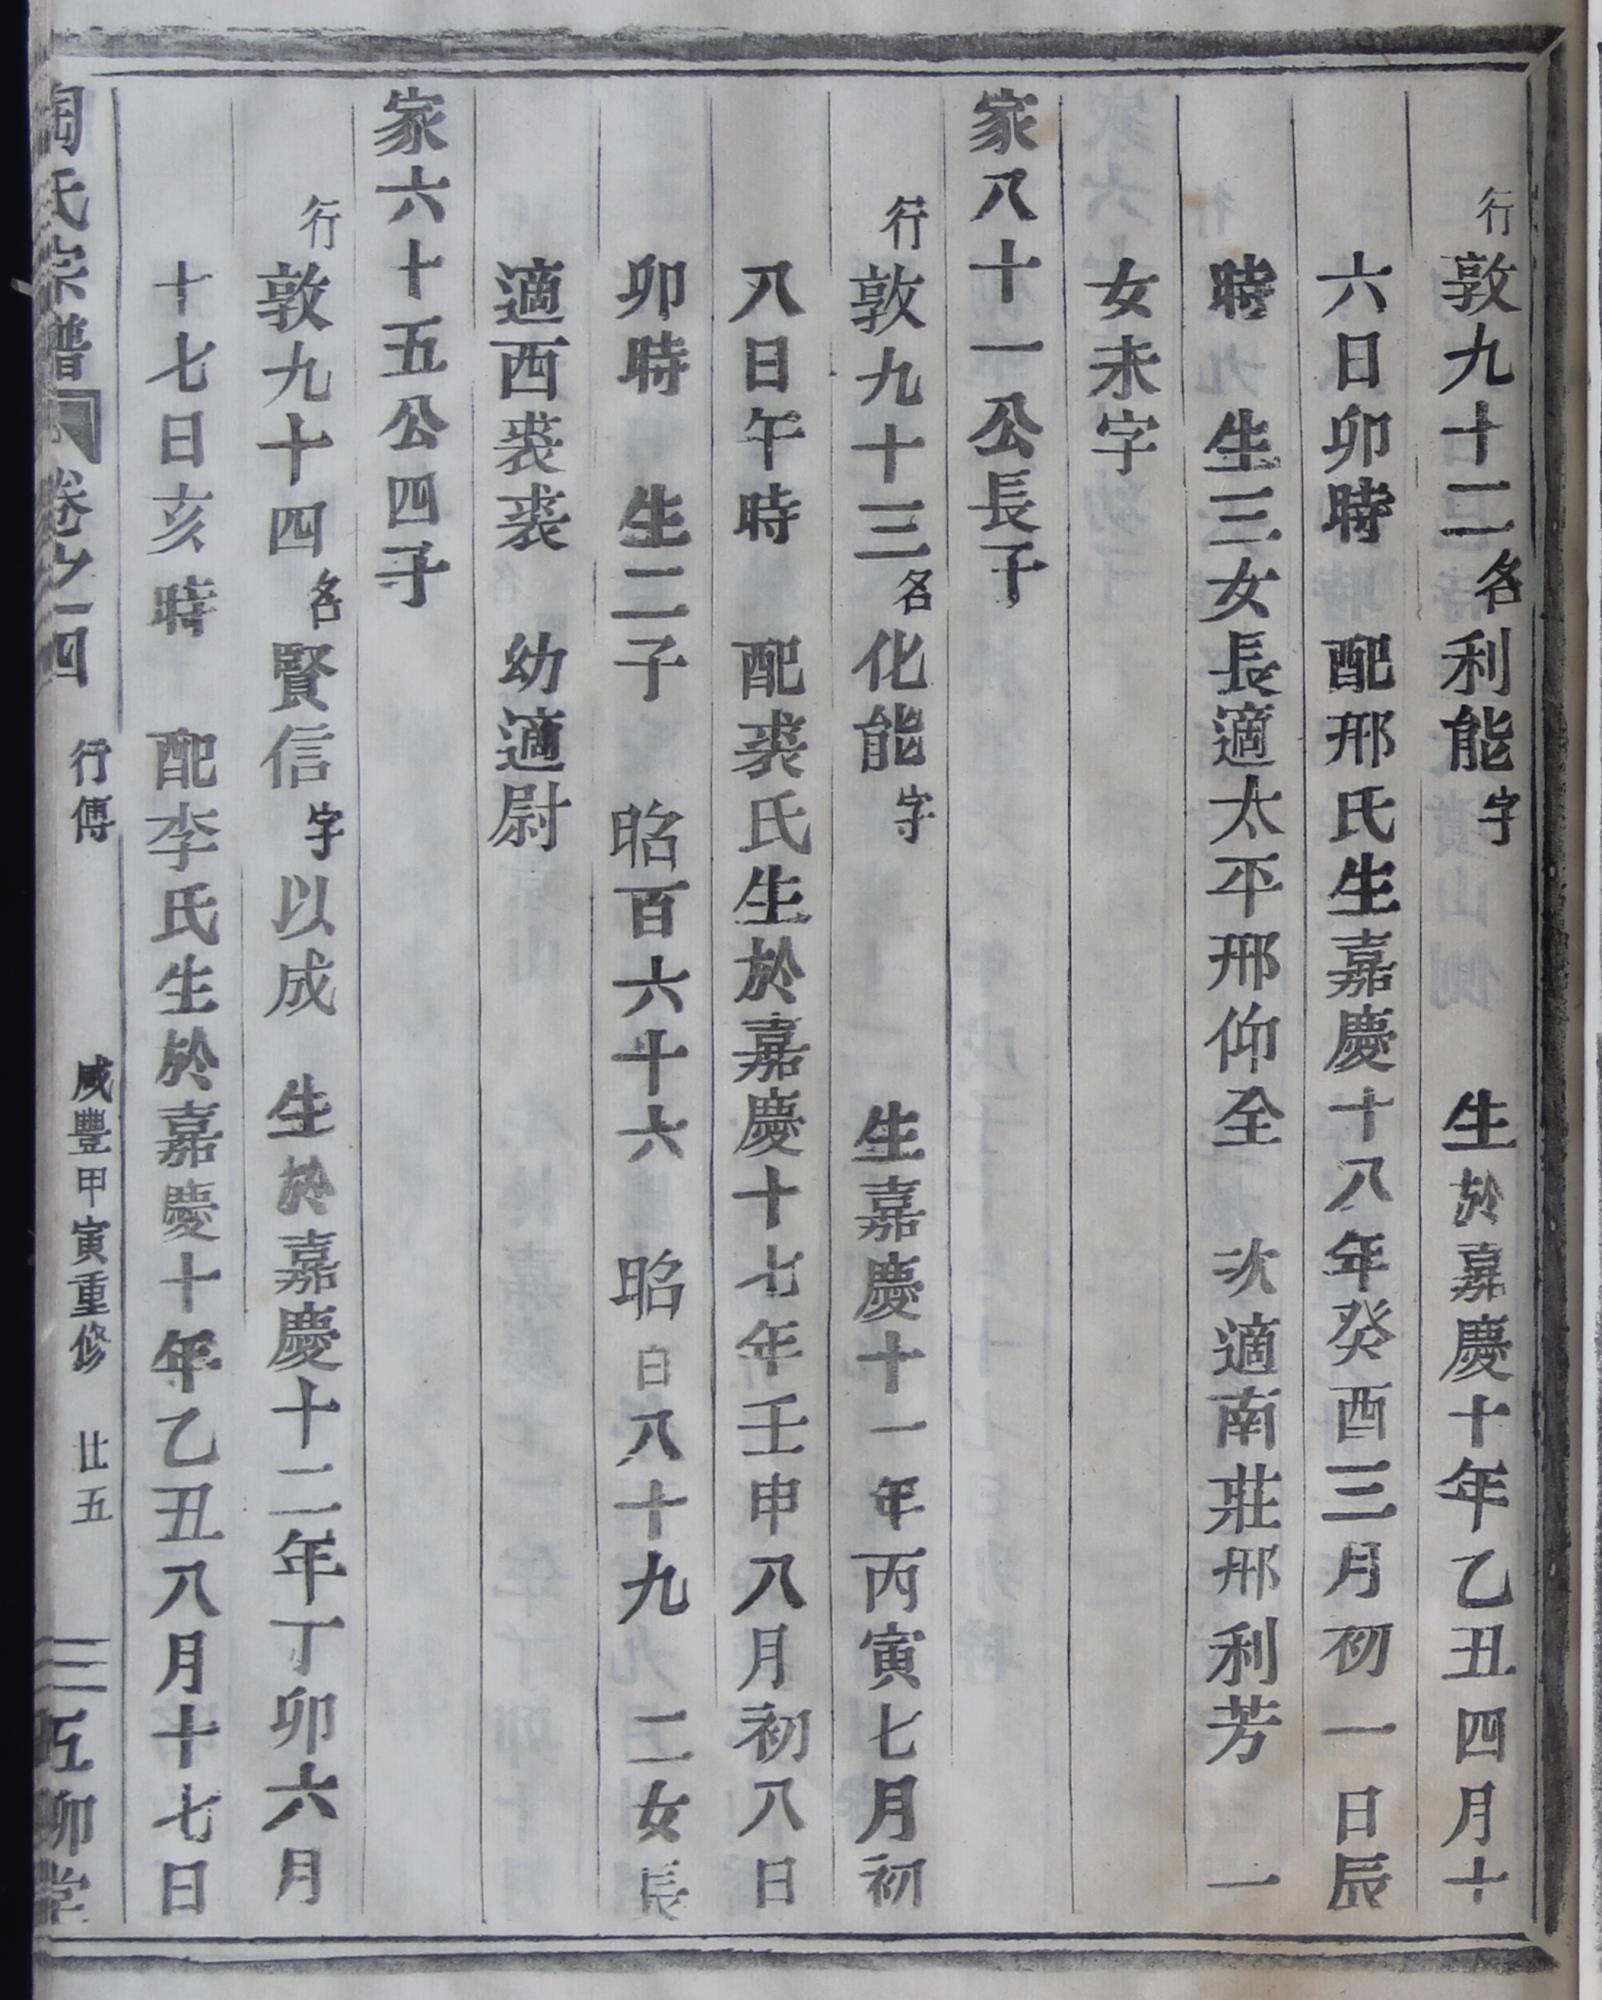 行敦九十二名利能字 生於嘉慶十年乙丑四月十
六日卯時 配邢氏生嘉慶十八年癸酉三月初一日辰
時 生三女長適太平邢仰全 次適南莊邢利芳 一
女未字
家八十一公長子
行敦九十三名化能字 生嘉慶十一年丙寅七月初
八日午時 配裘氏生於嘉慶十七年壬申八月初八日
卯時 生二子 昭百六十六 昭白八十九 二女長
適西裘裘 幼適尉
家六十五公四子
行敦九十四名賢信字以成 生於嘉慶十二年丁卯六月
十七日亥時 配李氏生於嘉慶十年乙丑八月十七日
陶氏宗譜 卷之四 行傳 咸豐甲寅重修 廿五 五柳堂